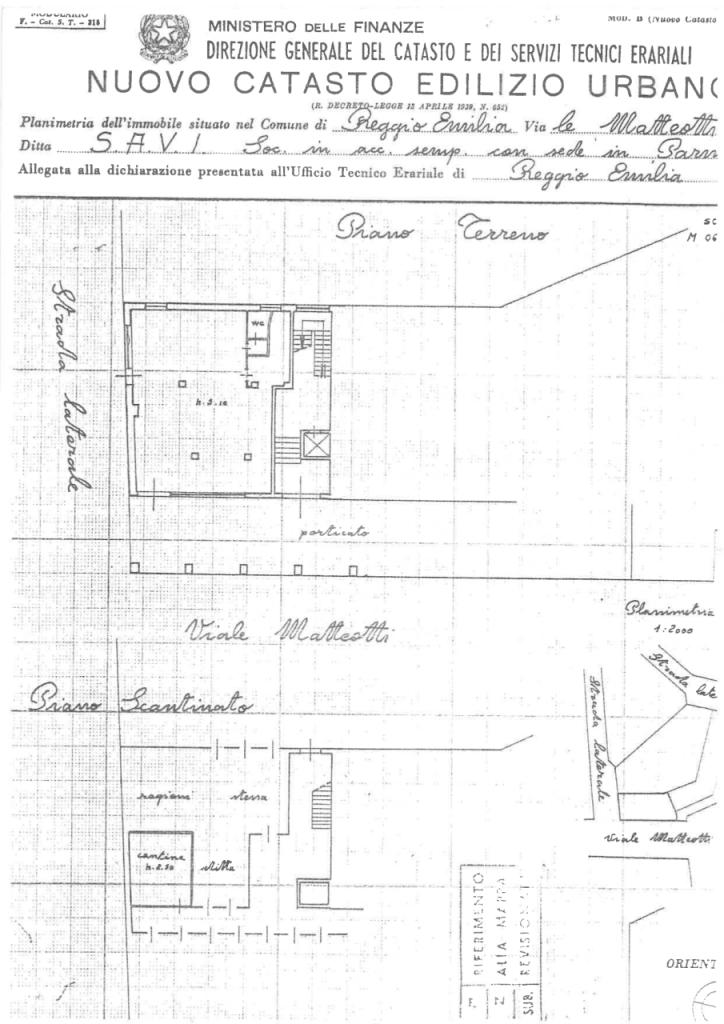 MODULARIO
F. - Cat. S. T. - 315
MOD. B (Nuovo Catasto
MINISTERO DELLE FINANZE
DIREZIONE GENERALE DEL CATASTO E DEI SERVIZI TECNICI ERARIALI
NUOVO CATASTO EDILIZIO URBANO
(R. DECRETO-LEGGE 13 APRILE 1939, N. 652)
Planimetria dell'immobile situato nel Comune di Reggio Emilia Via le Matteotti
Ditta S.A.V.I. Soc. in acc. semp. con sede in Parm
Allegata alla dichiarazione presentata all'Ufficio Tecnico Erariale di Reggio Emilia
Piano Terreno
SC
M 06
Strada laterale
WC
h. 3.10
porticato
Viale Matteotti
Planimetria
1:2000
Strada late
Strada laterale
Viale Matteotti
Piano Scantinato
ragioni stessa
cantine
h. 2.50
ditta
RIFERIMENTO
ALLA MAPPA
SUB.
ORIENT